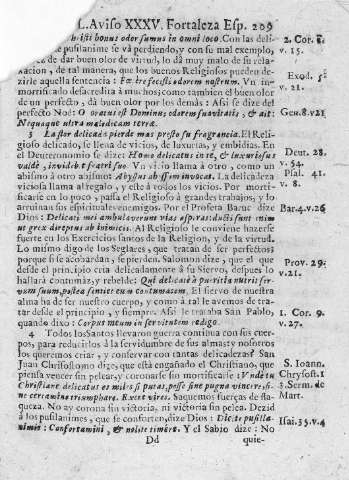 L. Aviso XXXV. Fortaleza Esp. 209
b isti bonus odor sumus in omni loco. Con las deli-
pusilanime se vá perdiendo, y con su mal exemplo,
de dar buen olor de virtud, lo dá muy malo de su rela-
xacion, de tal manera, que los buenos Religiosos pueden de-
zirle aquella sentencia: Fætere fecisti odorem nostrum. Vn in-
mortificado desacredita à muchos; como tambien el buen olor
de un perfecto, dà buen olor por los demás: Asi se dize del
perfecto Noè: Odoratus est Dominus odorem suavitatis, & ait:
Nequaquam ultra maledicam terræ.
3 La flor delicada pierde mas presto su fragrancia. El Reli-
gioso delicado, se llena de vicios, de luxurias, y embidias. En
el Deuteronomio se dize: Homo delicatus in te, & luxuriosus
valdè, invidebit fratri suo. Vn vicio llama à otro, como un
abismo à otro abismo: Abyssus abyssum invocat. La delicadeza
viciosa llama al regalo, y este à todos los vicios. Por morti-
ficarse en lo poco, passa el Religioso à grandes trabajos, y lo
arruinan sus espirituales enemigos. Por el Profeta Baruc dize
Dios: Delicati mei ambulaverunt vias asperas: ducti sunt enim
ut grex direptus ab inimicis. Al Religioso le conviene hazerse
fuerte en los Exercicios santos de la Religion, y de la virtud.
Lo mismo digo de los Seglares, que tratan de ser perfectos;
porque si se acobardan, se pierden. Salomon dize, que el que
desde el principio cria delicadamente à su Siervo, despues lo
hallará contumáz, y rebelde: Qui delicatè à pueritia nutrit ser-
vum suum, postea sentiet eum contumacem. El siervo de nuestra
alma ha de ser nuestro cuerpo, y como à tal le avemos de tra-
tar desde el principio, y siempre. Assi le trataba San Pablo,
quando dixo: Corpus meum in servitutem redigo.
4 Todos los Santos llevaron guerra continua con sus cuer-
pos, para reducirlos à la servidumbre de sus almas; y nosotros
los queremos criar, y conservar con tantas delicadezas? San
Juan Chrisostomo dize, que està engañado el Christiano, que
piensa vencer sin pelear, y coronarse sin mortificarse: Unde tu
Christiane delicatus es miles si putas, posse sine pugna vincere, si-
ne certamine triumphare. Exere vires. Saquemos fuerças de fla-
queza. No ay corona sin victoria, ni victoria sin pelea. Dezid
à los pusilanimes, que se conforten, dize Dios: Dicite pusilla-
nimis: Confortamini, & nolite timere. Y el Sabio dize: No
Dd quie-
2. Cor. 2.
v. 15.
Exod. 5.
v. 21.
Gen. 8. v. 21
Deut. 28.
v. 54.
Psal. 41.
v. 8.
Bar. 4. v. 26
Prov. 29.
v. 21.
1. Cor. 9.
v. 27.
S. Ioann.
Chrysost. 1
3. Serm. de
Mart.
Isai. 35. v. 4